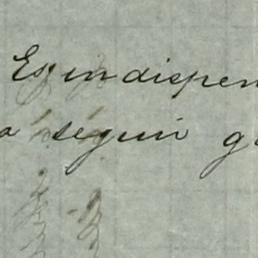 Es indispen
a seguir g